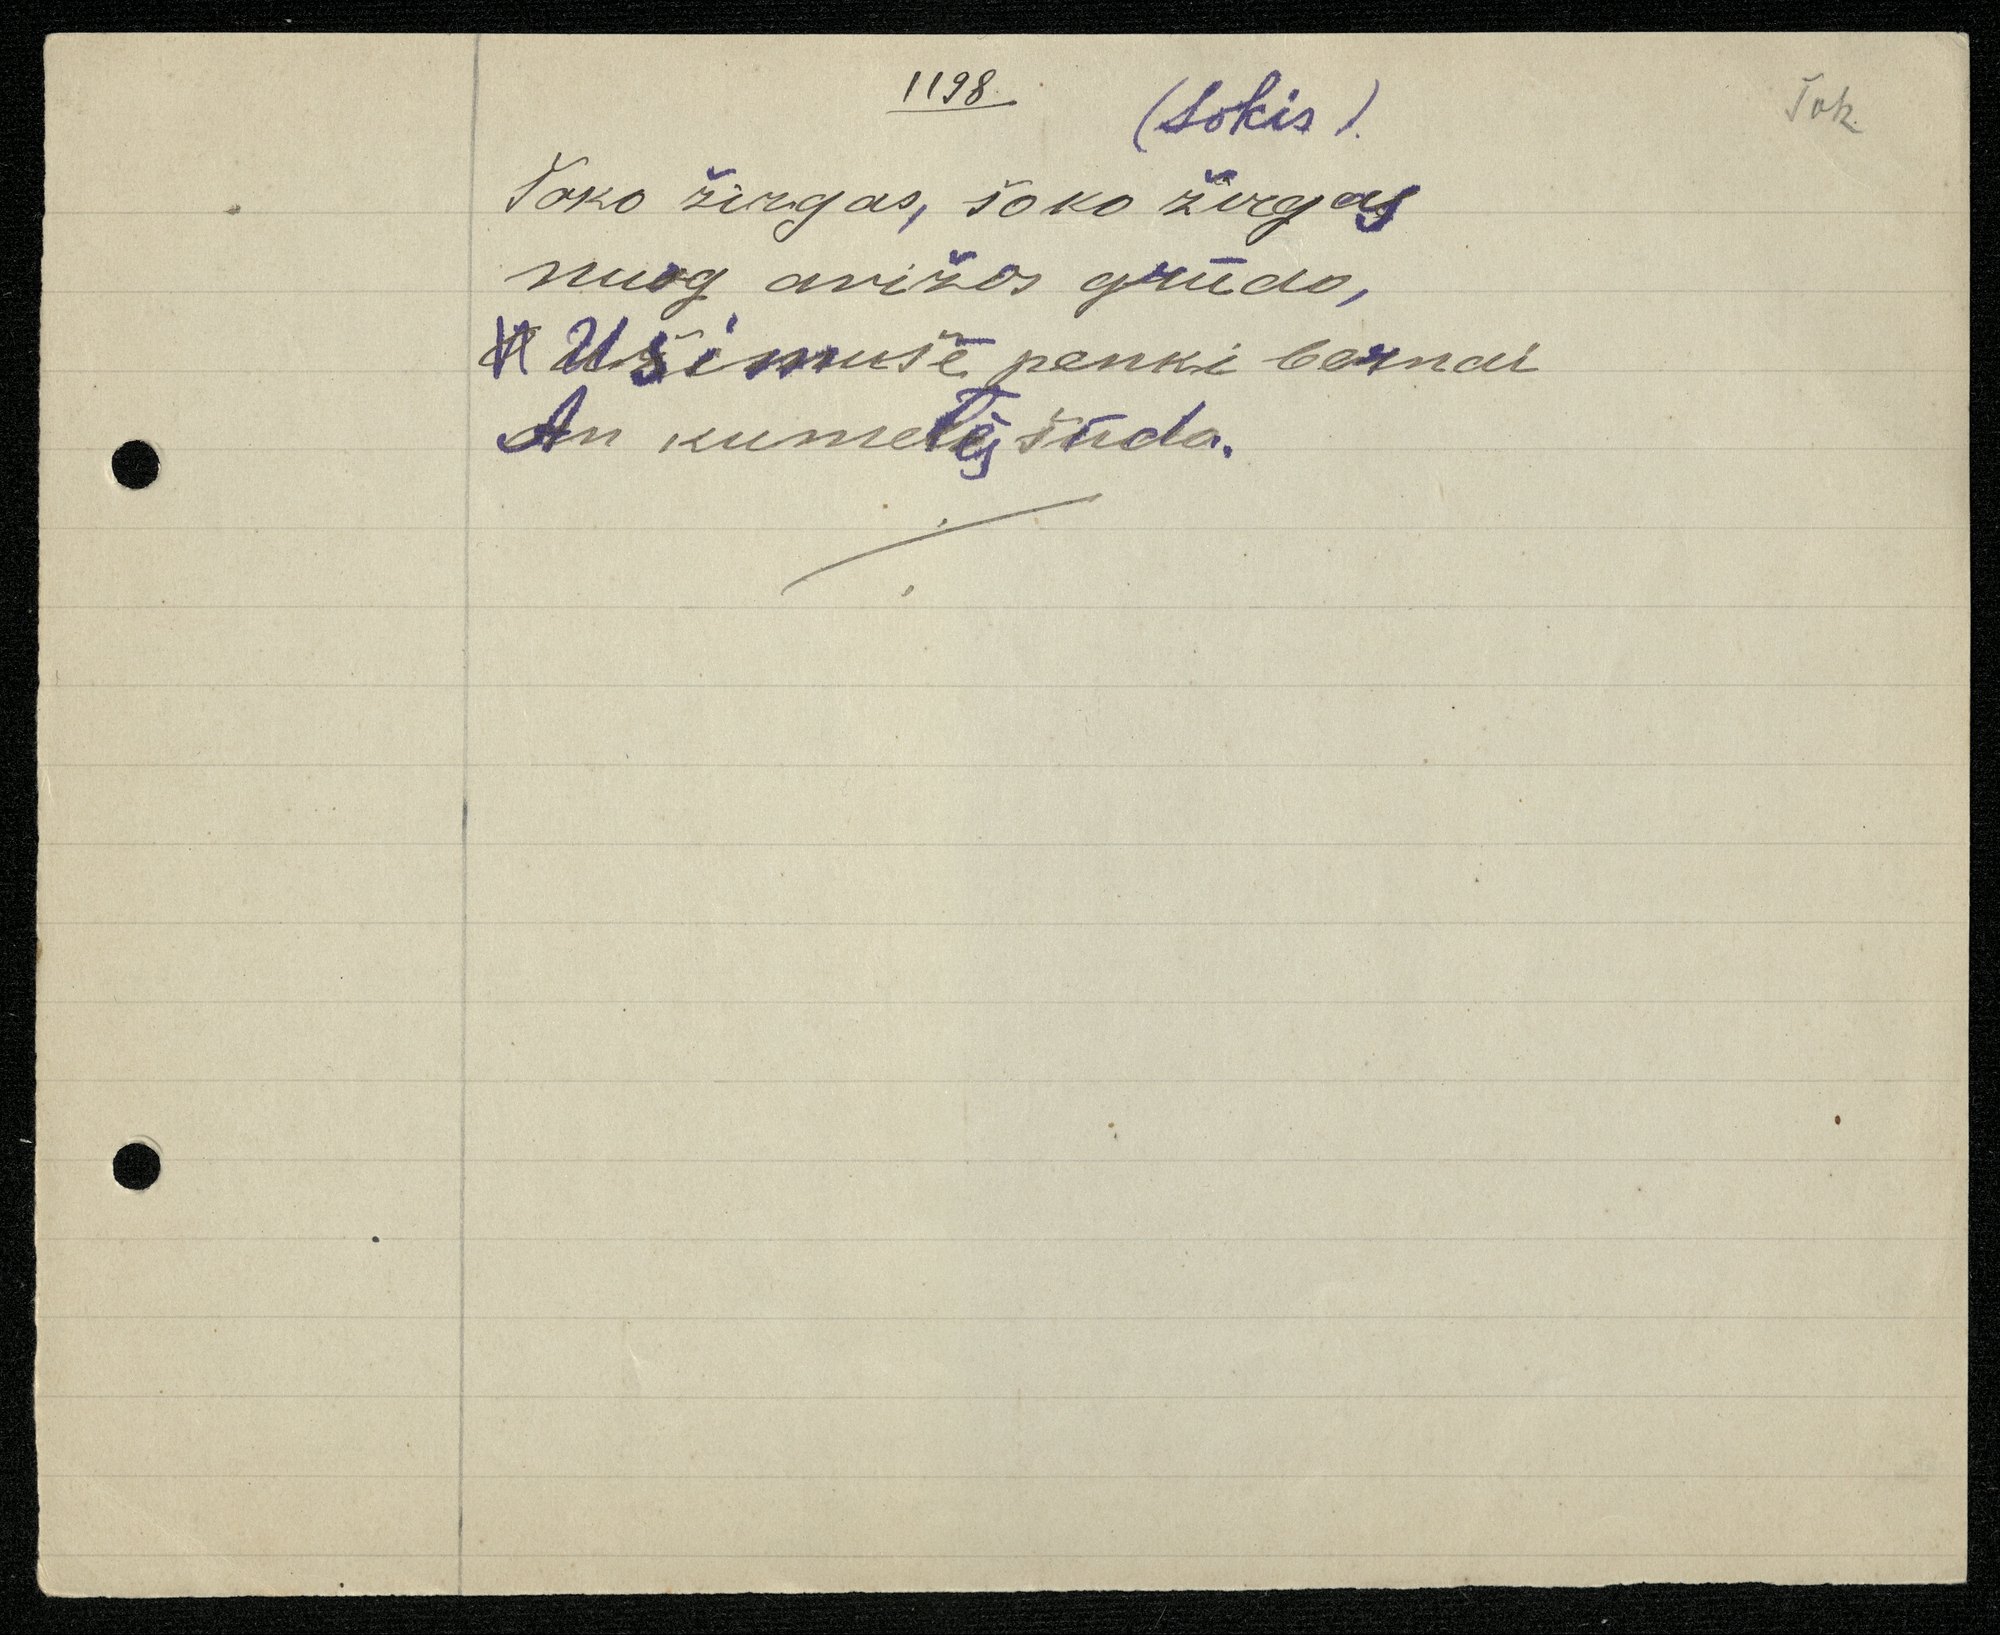 1198
(Šokis).
Šok.
Šoko žirgas, šoko žirgas
nuog avižos grūdo,
Usimušė penki bernai
An kumelės šūdo.